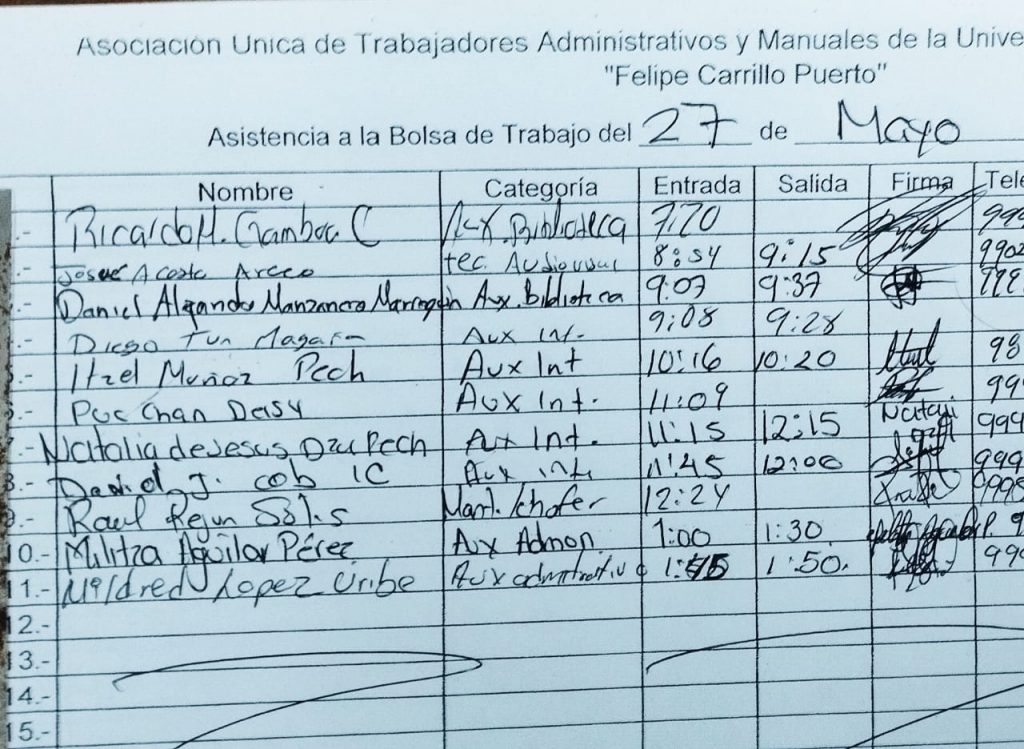 Asociación Unica de Trabajadores Administrativos y Manuales de la Unive
"Felipe Carrillo Puerto"
Asistencia a la Bolsa de Trabajo del 27 de Mayo
Nombre Categoría Entrada Salida Firma Tele
.- Ricardo H. Gamboa C Aux. Biblioteca 7:20 999
.- Josue Acosta Arceo tec. Audiovisual 8:54 9:15 9902
.- Daniel Alejandro Manzanero Aux. Biblioteca 9:07 9:37 999
.- Diego Tun Magaña Aux Int. 9:08 9:28
.- Itzel Muñoz Pech Aux Int 10:16 10:20 98
.- Puc Chan Deisy Aux Int. 11:09 99
.- Natalia de Jesus Dzu Pech Aux Int. 11:15 12:15 999
8.- Daniel J. Cob IC Aux int. 11:45 12:00 999
9.- Raul Rejun Sólis Mant./chofer 12:24 9990
10.- Militza Aguilar Pérez Aux Admon. 1:00 1:30. 9
11.- Mildred Lopez Uribe Aux administrativo 1:50. 999
12.-
13.-
14.-
15.-